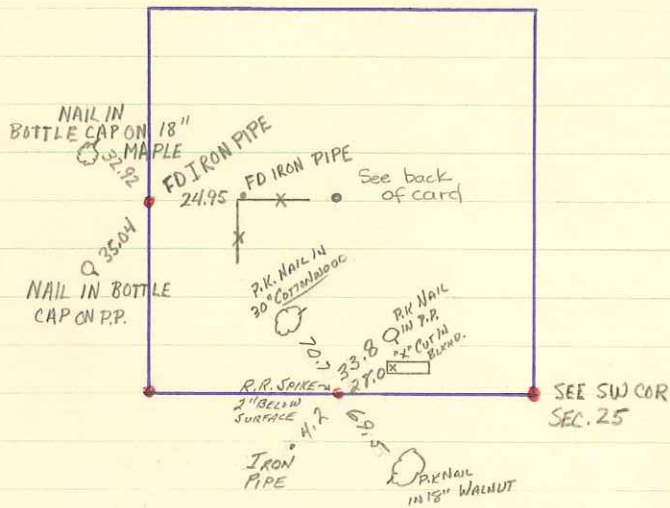 NAIL IN
BOTTLE CAP ON 18"
MAPLE
32.92
FD IRON PIPE
24.95
FD IRON PIPE
See back
of card
35.04
NAIL IN BOTTLE
CAP ON P.P.
P.K. NAIL IN
30" COTTONWOOD
70.7
P.K NAIL
IN P.P.
33.8
"X" CUT IN
28.0
R.R. SPIKE
2" BELOW
SURFACE
4.2
IRON
PIPE
69.5
P.K NAIL
IN 18" WALNUT
SEE SW COR
SEC. 25